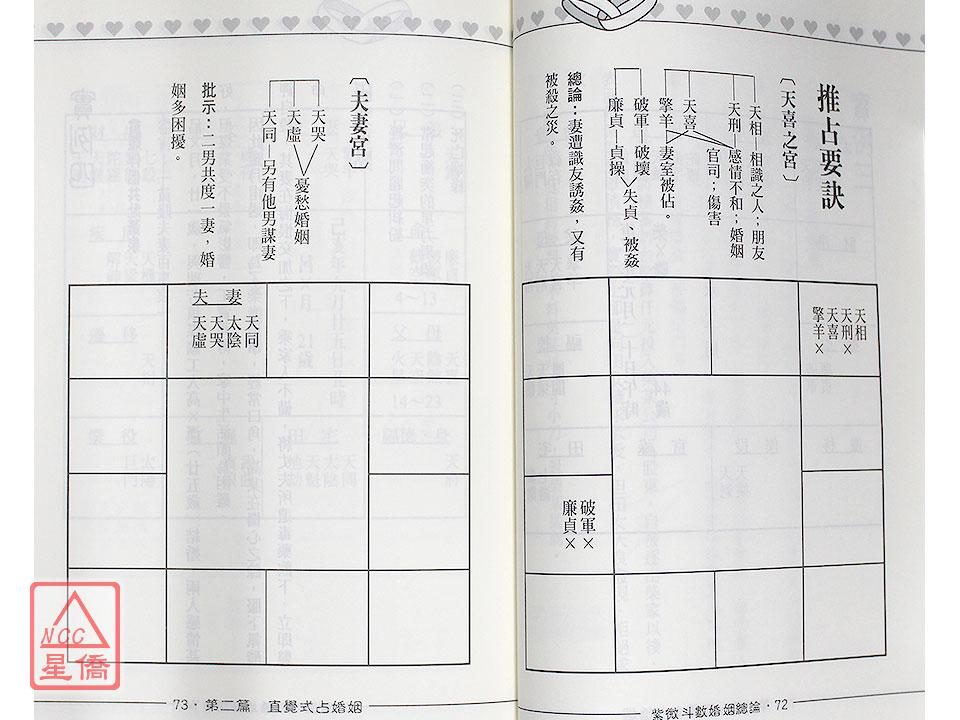 推占要訣
〔天喜之宮〕
天相—相識之人；朋友
天刑—感情不和；婚姻
官司；傷害
天喜
擎羊—妻室被佔。
破軍—破壞
廉貞—貞操
失貞、被姦
總論：妻遭識友誘姦，又有
被殺之災。
天相
天刑×
天喜
擎羊×
破軍×
廉貞×
紫微斗數婚姻總論·72
〔夫妻宮〕
天哭
天虛
憂愁婚姻
天同—另有他男謀妻
批示：二男共度一妻，婚
姻多困擾。
夫妻
天同
太陰
天哭
天虛
73·第二篇 直覺式占婚姻
NCC
星僑